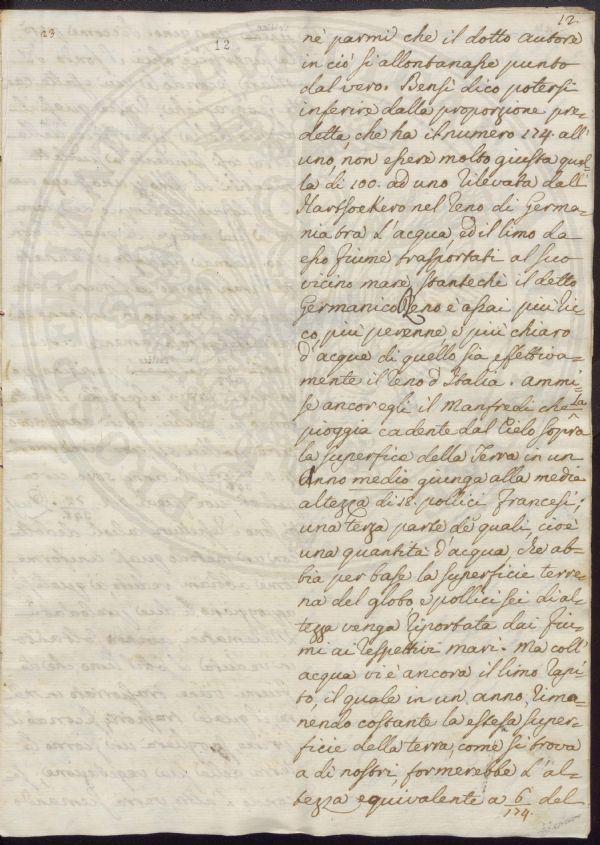 23
12
12
nè parmi che il dotto autore
in ciò si allontanasse punto
dal vero. Bensì dico potersi
inferire dalla proporzione pre-
detta, che ha il numero 174. all'
uno, non essere molto giusta quel-
la, di 100. ad uno rilevata dall'
Hartsoekero nel Reno di Germa-
nia tra l'acqua, ed il limo da
esso fiume trasportati al suo
vicino mare, stantechè il detto
Germanico Reno è assai più ric
co, più perenne, e più chiaro
d'acque di quello sia effettiva-
mente il Reno d'Italia. ammi-
se ancor egli il Manfredi che la
pioggia cadente dal Cielo sopra
la superfice della Terra in un
Anno medio giunga alla media
altezza di 18. pollici francesi,
una terza parte de quali, cioè
una quantità d'acqua che ab-
bia per base la superficie terre-
na del globo, e pollici sei di al-
tezza venga riportata dai fiu-
mi ai respettivi mari. Ma coll'
acqua vi è ancora il limo rapi-
to, il quale in un anno, rima-
nendo costante la estesa super-
ficie della terra, come si trova
a di nostri, formerebbe l'al-
tezza equivalente a 6/174. del